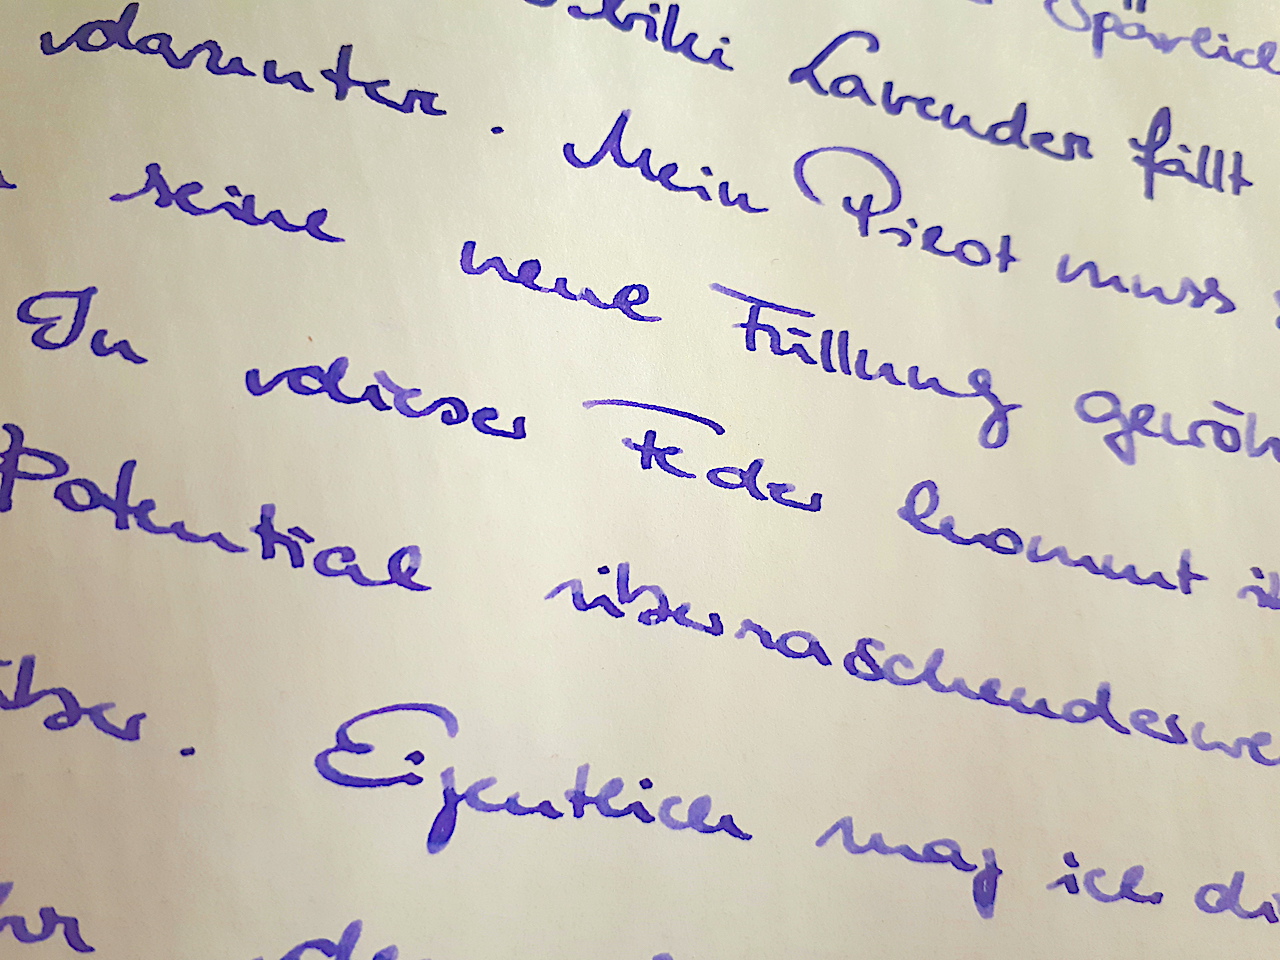 Spärlich
Lavender fällt
darunter. Mein Pilot muss
seine neue Füllung
In dieser Feder kommt
Potential überraschenderwe
über. Eigentlich mag ich di